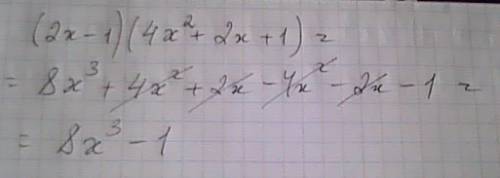 (2x-1)(4x²+2x+1)=
= 8x³+4x²+2x-4x²-2x-1 =
= 8x³-1